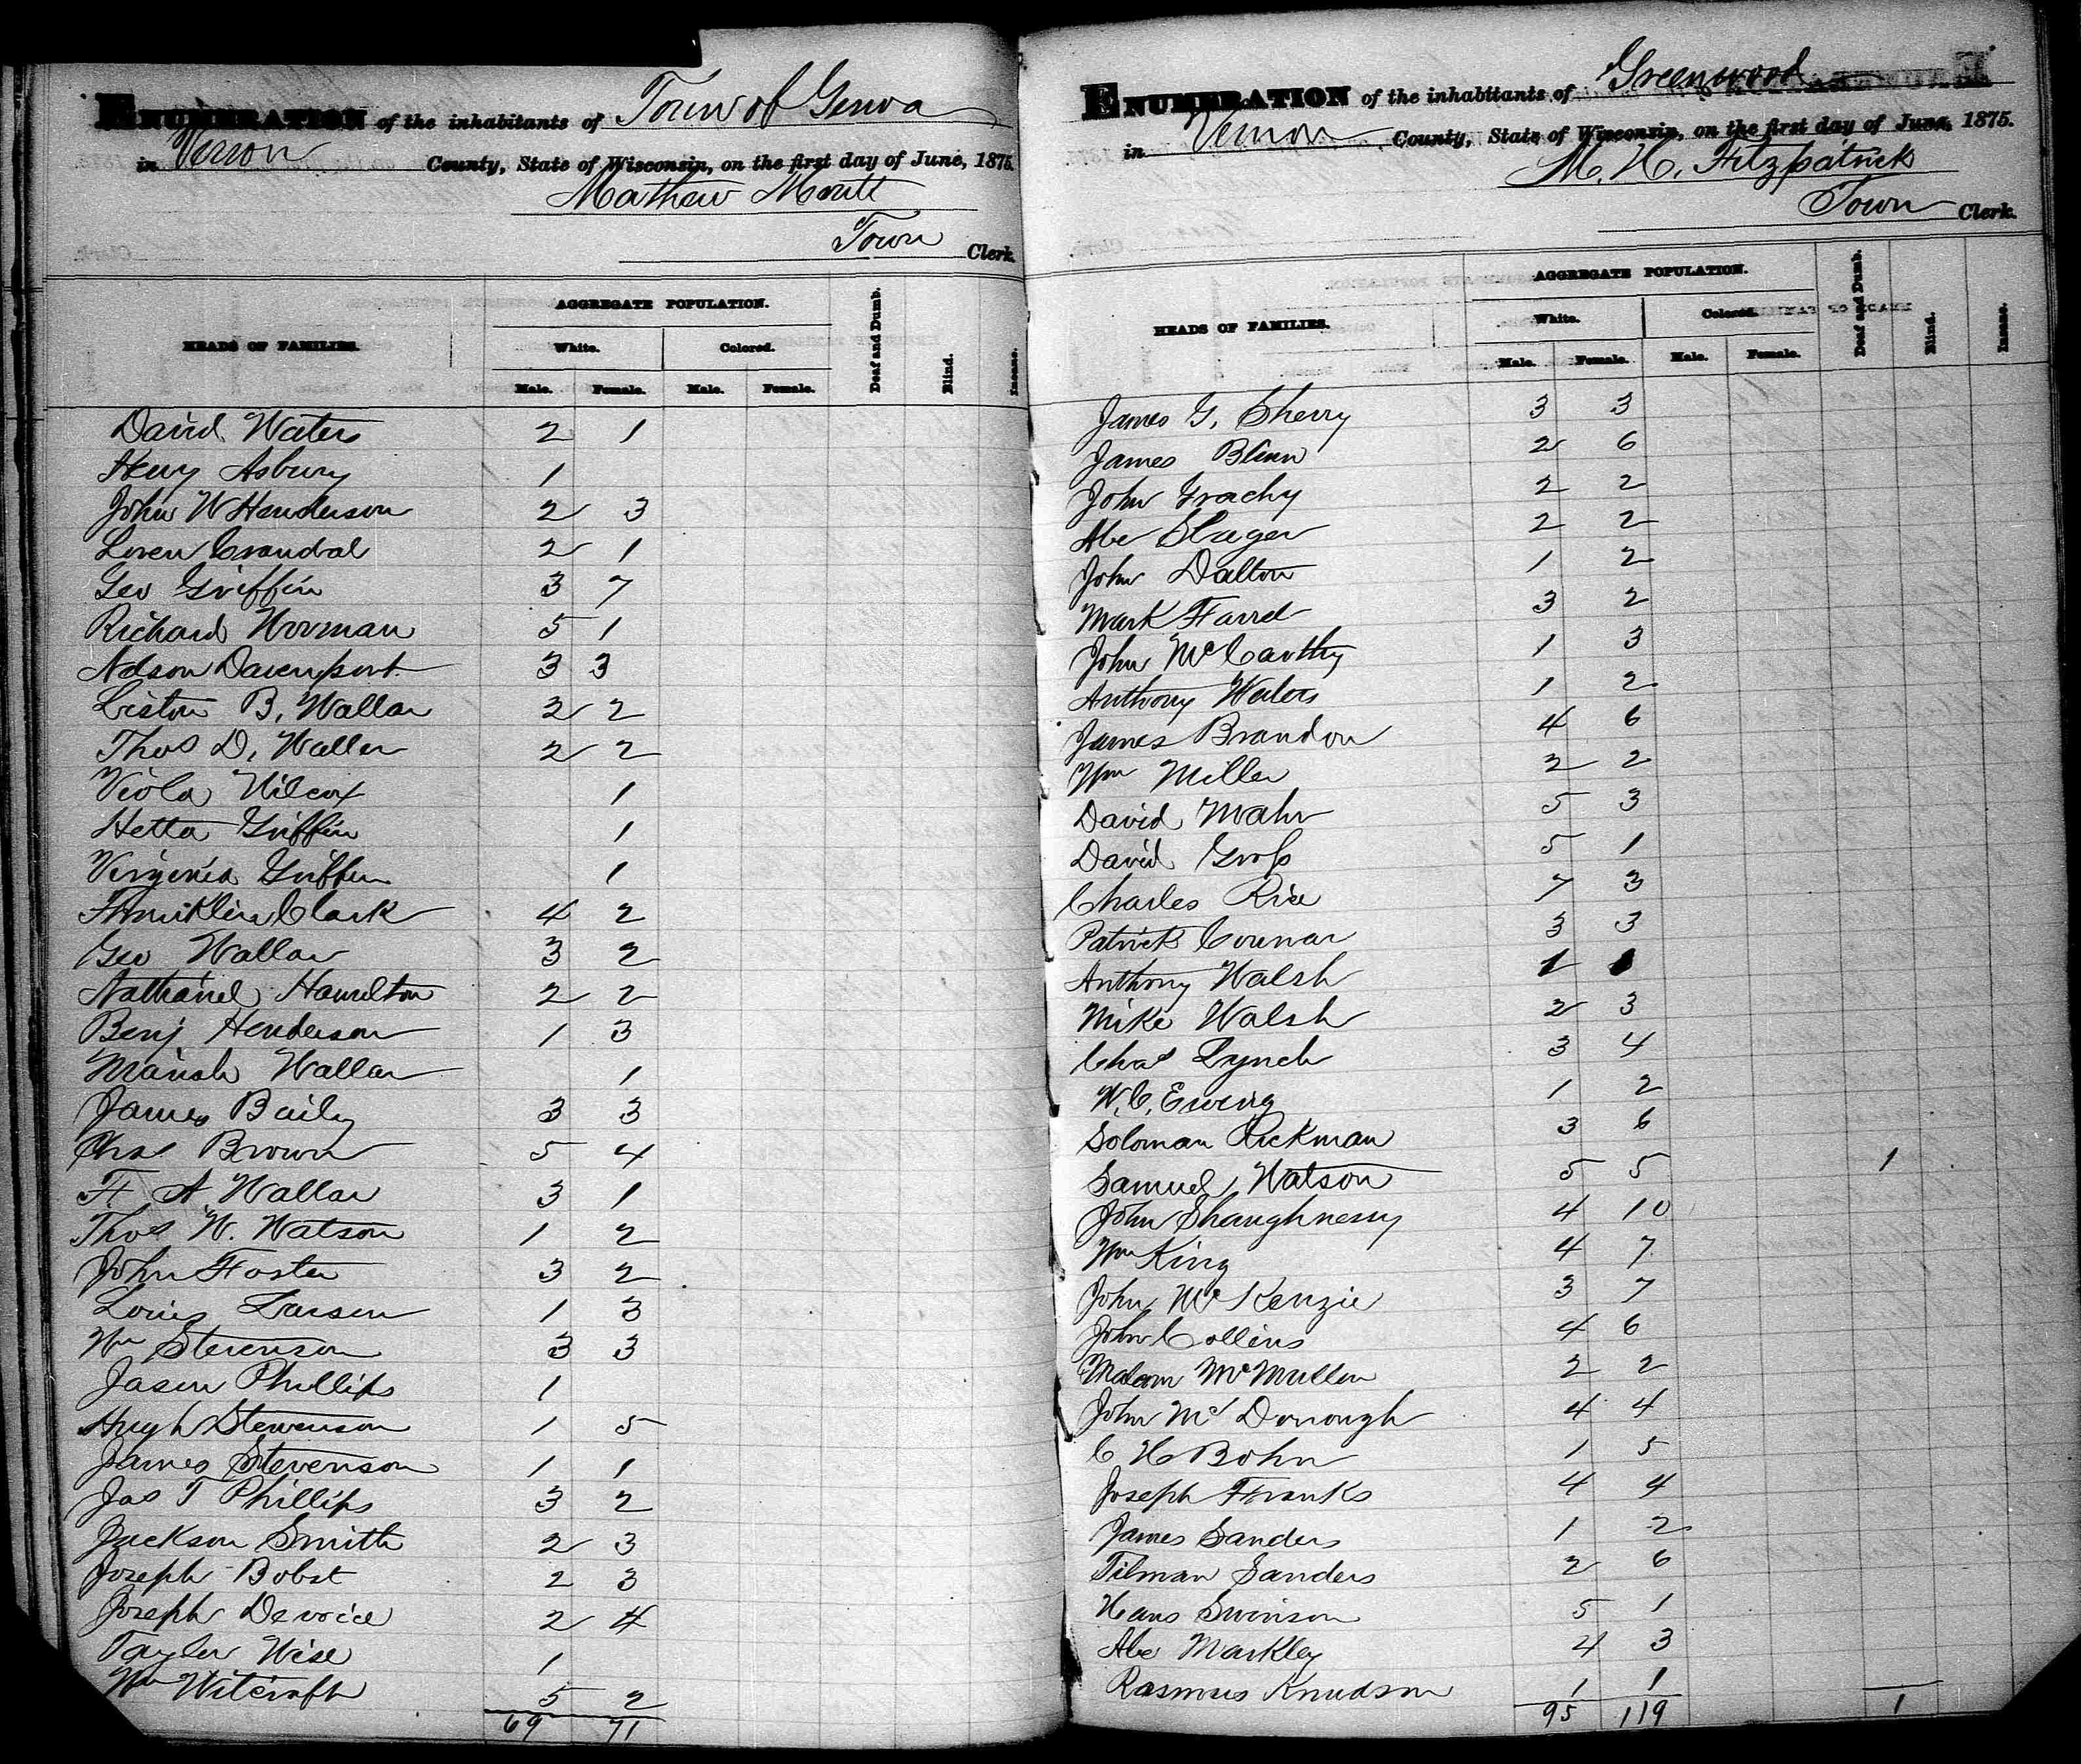 ENUMERATION of the inhabitants of Town of Genoa
in Vernon County, State of Wisconsin, on the first day of June, 1875.
Mathew Monti
Town Clerk.
HEADS OF FAMILIES. AGGREGATE POPULATION. Deaf and Dumb. Blind. Insane.
White. Colored.
Male. Female. Male. Female.
David Waters 2 1
Henry Asbury 1
John W Henderson 2 3
Loren Crandal 2 1
Geo Griffin 3 7
Richard Worman 5 1
Nelson Davenport 3 3
Liston B. Wallar 2 2
Thos D. Waller 2 2
Viola Wilcox 1
Hetta Griffin 1
Virginia Griffin 1
Franklin Clark 4 2
Geo Wallar 3 2
Nathaniel Hamilton 2 2
Benj Henderson 1 3
Mariah Wallar 1
James Baily 3 3
Chas Brown 5 4
F. A Wallar 3 1
Thos W. Watson 1 2
John Foster 3 2
Louis Larsen 1 3
Wm Stevenson 3 3
Jasen Phillips 1
Hugh Stevenson 1 5
James Stevenson 1 1
Jas T Phillips 3 2
Jackson Smith 2 3
Joseph Bobst 2 3
Joseph Devoice 2 4
Tayler Wise 1
Wm Witcraft 5 2
69 71
ENUMERATION of the inhabitants of Greenwood
in Vernon County, State of Wisconsin, on the first day of June, 1875.
M. H. Fitzpatrick
Town Clerk.
HEADS OF FAMILIES. AGGREGATE POPULATION. Deaf and Dumb. Blind. Insane.
White. Colored.
Male. Female. Male. Female.
James G. Sherry 3 3
James Blinn 2 6
John Grachy 2 2
Abe Slager 2 2
John Dalton 1 2
Mark Farrel 3 2
John McCarthy 1 3
Anthony Waters 1 2
James Brandon 4 6
Wm Miller 2 2
David Mahr 5 3
David Gross 5 1
Charles Rice 7 3
Patrick Connar 3 3
Anthony Walsh 1 1
Mike Walsh 2 3
Chas Lynch 3 4
W. C. Ewing 1 2
Soloman Rickman 3 6
Samuel Watson 5 5 1
John Shaughnessy 4 10
Wm King 4 7
John McKenzie 3 7
John Collins 4 6
Malcom McMullen 2 2
John McDonough 4 4
C H Bohn 1 5
Joseph Franks 4 4
James Sanders 1 2
Tilman Sanders 2 6
Hans Swinson 5 1
Abe Markley 4 3
Rasmus Knudson 1 1
95 119 1